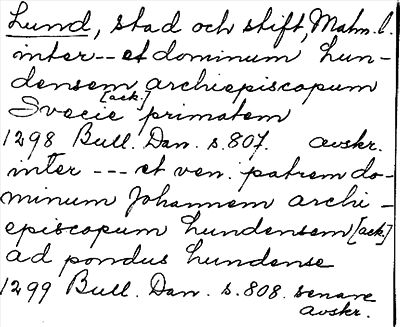 Lund, stad och stift, Malm. l.
inter -- et dominum Lun-
densem archiepiscopum
Svecie [ack.] primatem
1298 Bull. Dan. s. 807. avskr.
inter --- et ven. patrem do-
minum Johannem archi-
episcopum Lundensem [ack.]
ad pondus Lundense
1299 Bull. Dan. s. 808. senare
avskr.